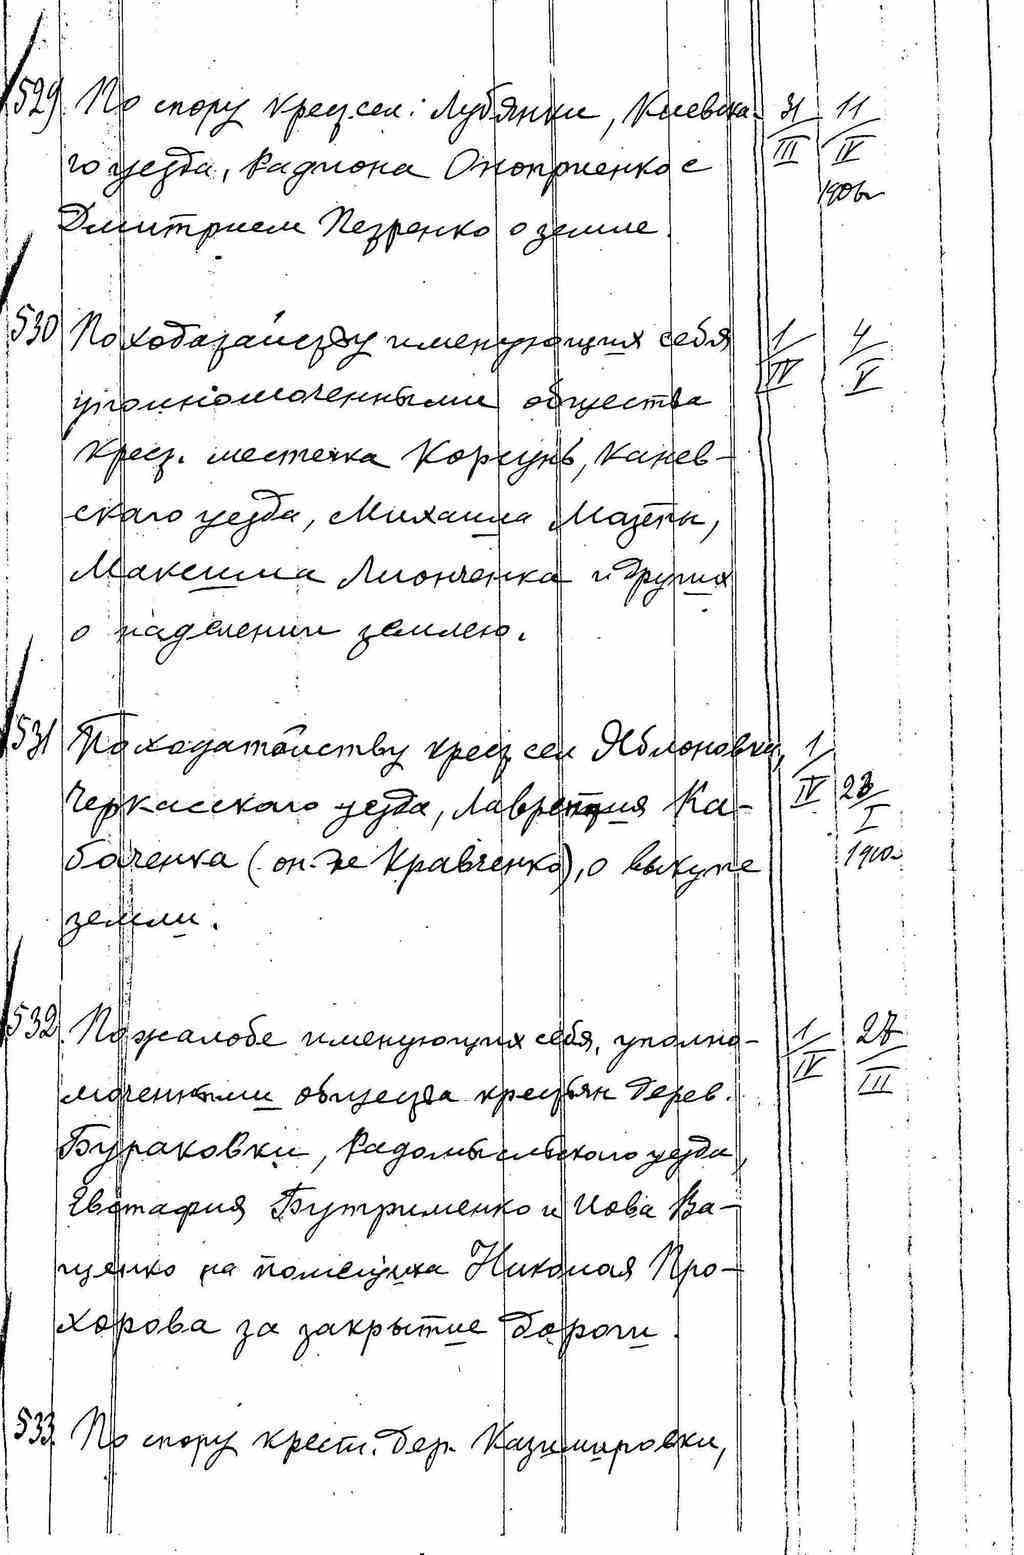 529 По спору крест. сел: Лубянки, Киевска- 31/III 11/IV
го уезда, Радиона Оноприенко с 1906 г.
Дмитрием Петренко о земле.
530 По ходатайству именующих себя 1/IV 4/V
уполномоченными общества
крест. местечка Корсунь, Канев-
ского уезда, Михаила Мазепы,
Максима Лионченка и других
о наделении землею.
531 По ходатайству крест. сел Яблоновки, 1/IV
Черкасского уезда, Лаврентия Ка- 23/I
баченка (он-же Кравченко), о выкупе 1910 г.
земли.
532. По жалобе именующих себя, уполно- 1/IV 27/III
моченными общества крестьян дерев.
Бураковки, Радомысльского уезда,
Евстафия Бутрименко и Иова Ва-
щенко на помещика Николая Про-
хорова за закрытие дороги.
533. По спору крест. дер. Казимировки,